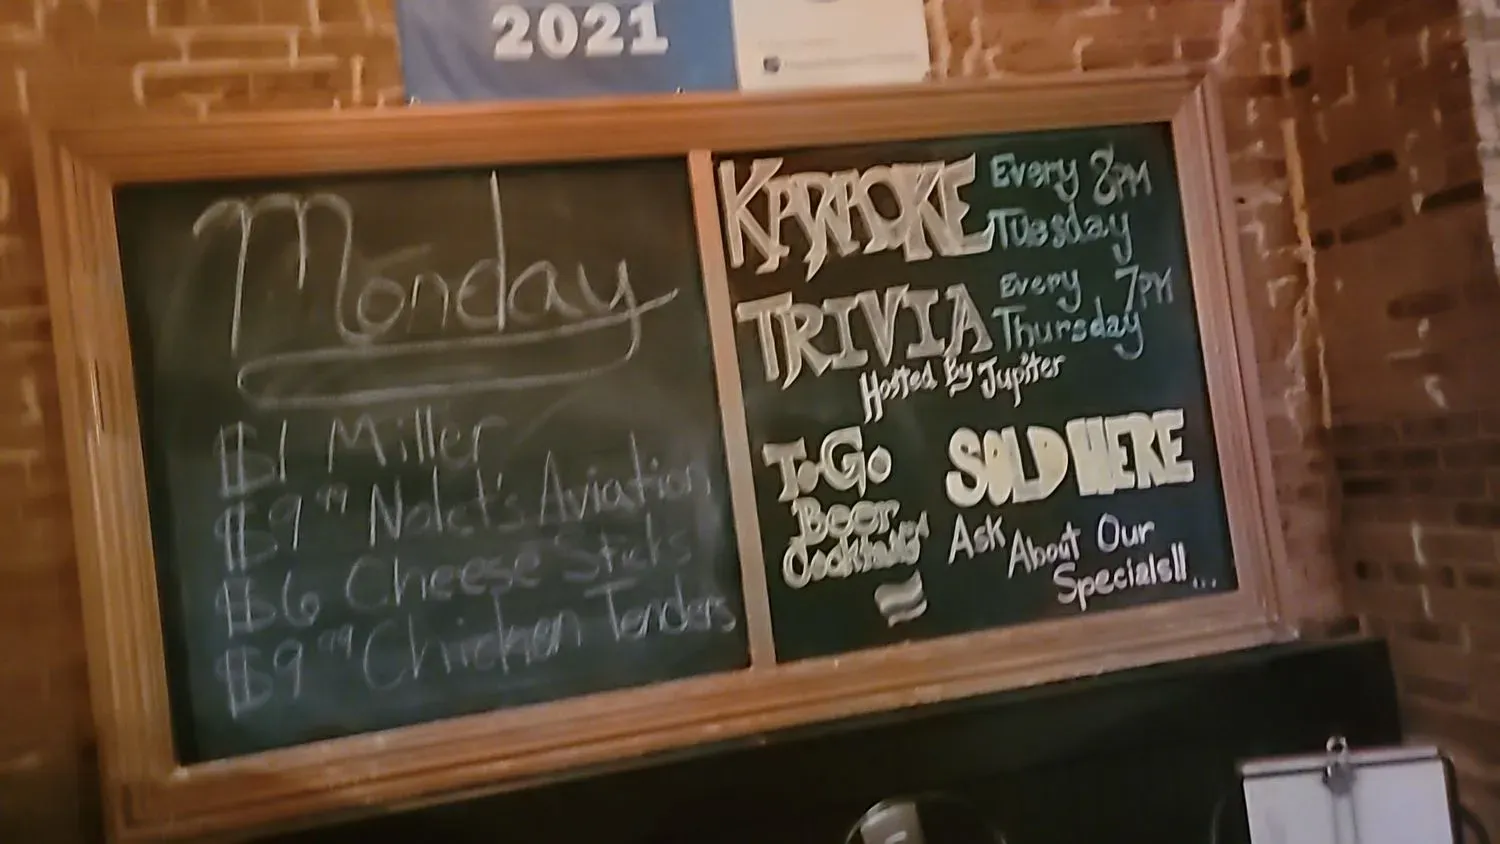 2021
Monday
$1 Miller
$9.99 Nolet's Aviation
$6 Cheese Sticks
$9.99 Chicken Tenders
KARAOKE Every 8PM
Tuesday
TRIVIA Every 7PM
Thursday
Hosted By Jupiter
To Go SOLD HERE
Beer
Cocktails
Ask About Our
Specials!!...